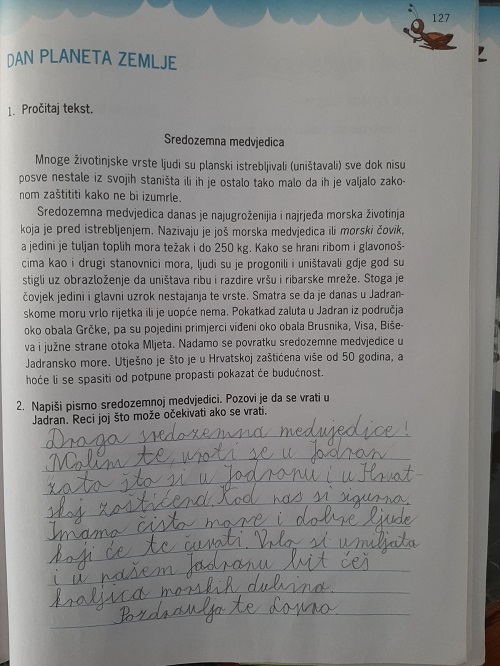 127
DAN PLANETA ZEMLJE
1. Pročitaj tekst.
Sredozemna medvjedica
Mnoge životinjske vrste ljudi su planski istrebljivali (uništavali) sve dok nisu
posve nestale iz svojih staništa ili ih je ostalo tako malo da ih je valjalo zako-
nom zaštititi kako ne bi izumrle.
Sredozemna medvjedica danas je najugroženija i najrjeđa morska životinja
koja je pred istrebljenjem. Nazivaju je još morska medvjedica ili morski čovik,
a jedini je tuljan toplih mora težak i do 250 kg. Kako se hrani ribom i glavonoš-
cima kao i drugi stanovnici mora, ljudi su je progonili i uništavali gdje god su
stigli uz obrazloženje da uništava ribu i razdire vršu i ribarske mreže. Stoga je
čovjek jedini i glavni uzrok nestajanja te vrste. Smatra se da je danas u Jadran-
skome moru vrlo rijetka ili je uopće nema. Pokatkad zaluta u Jadran iz područja
oko obala Grčke, pa su pojedini primjerci viđeni oko obala Brusnika, Visa, Biše-
va i južne strane otoka Mljeta. Nadamo se povratku sredozemne medvjedice u
Jadransko more. Utješno je što je u Hrvatskoj zaštićena više od 50 godina, a
hoće li se spasiti od potpune propasti pokazat će budućnost.
2. Napiši pismo sredozemnoj medvjedici. Pozovi je da se vrati u
Jadran. Reci joj što može očekivati ako se vrati.
Draga sredozemna medvjedice!
Molim te, vrati se u Jadran
zato što si u Jadranu i u Hrvat-
skoj zaštićena. Kod nas si sigurna.
Imamo čisto more i dobre ljude
koji će te čuvati. Vrlo si umiljata
i u našem Jadranu bit ćeš
kraljica morskih dubina.
Pozdravlja te